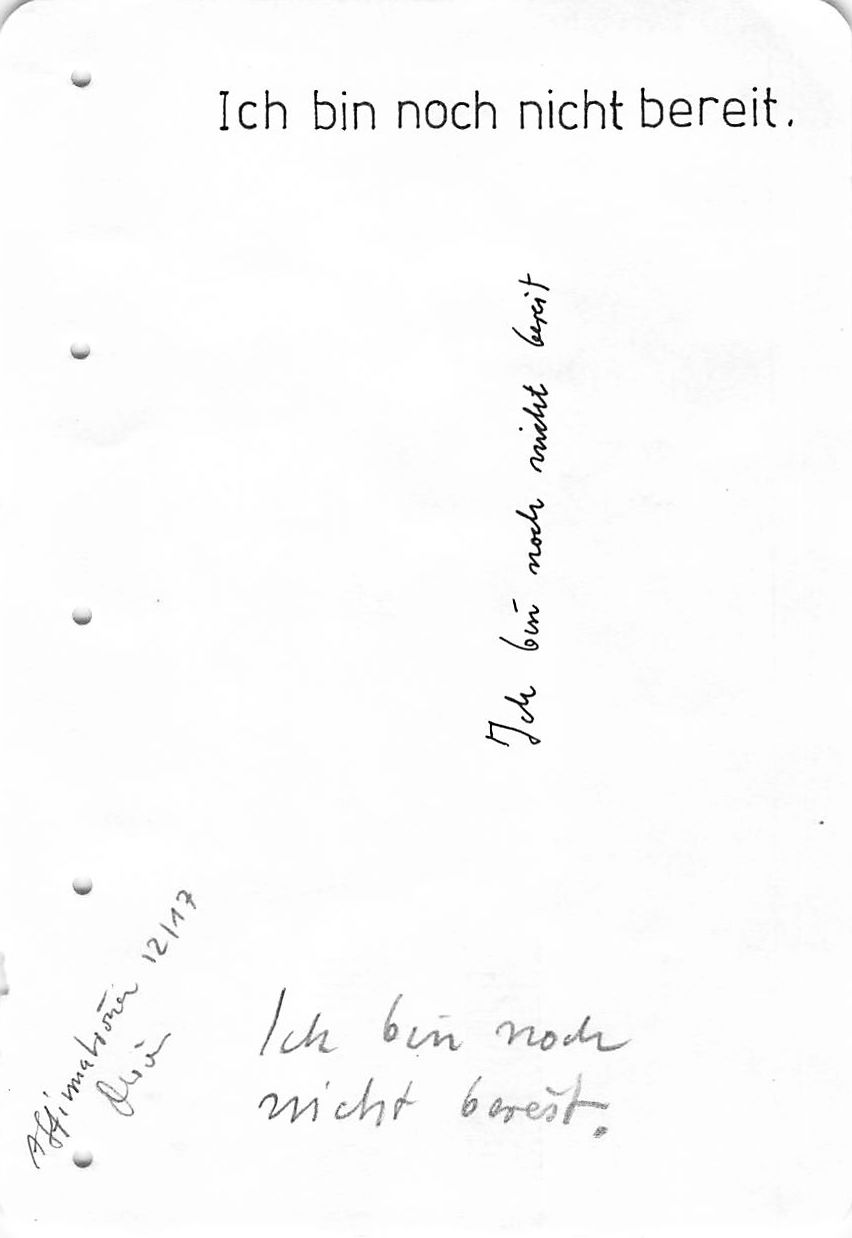 Ich bin noch nicht bereit.
Ich bin noch nicht bereit
Affirmationen 12/17
Ich bin noch
nicht bereit.